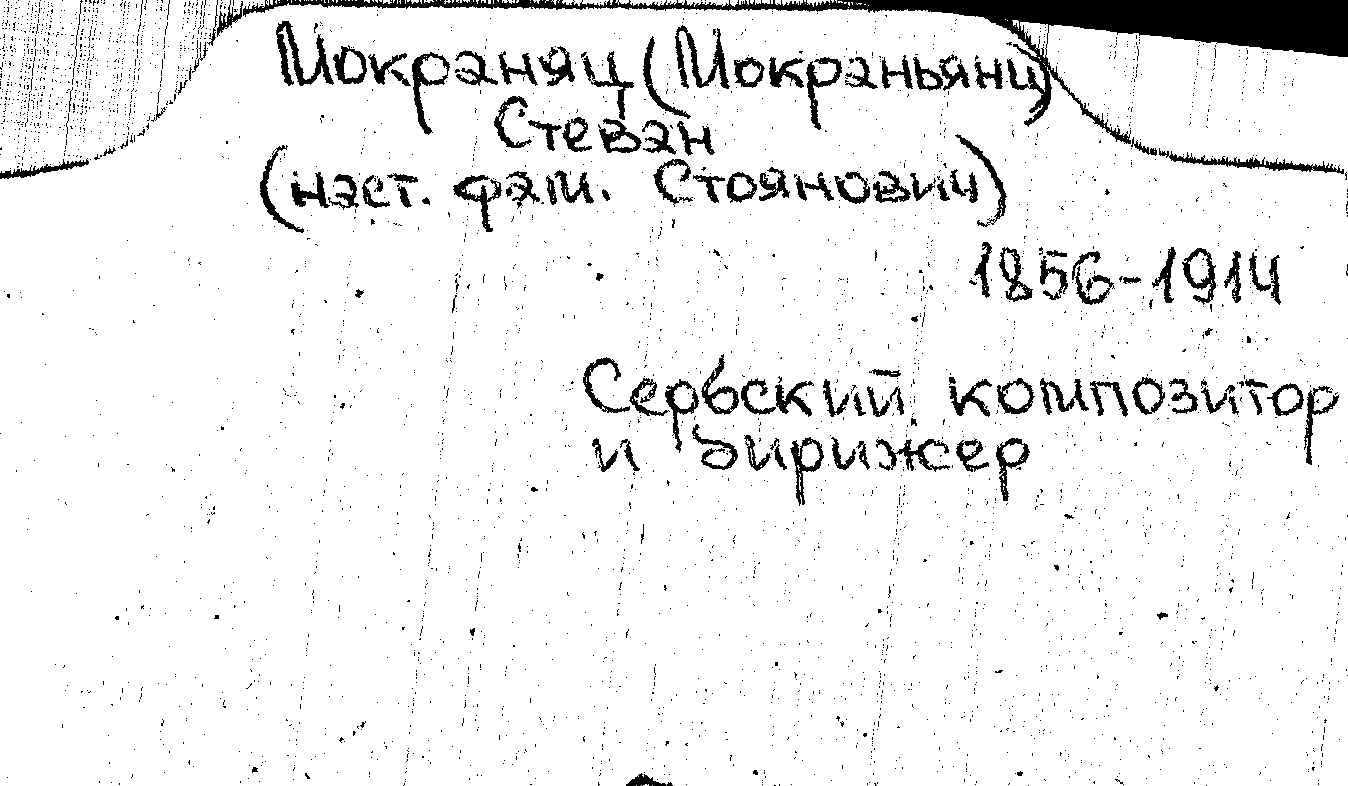 Мокраняц (Мокраньянц)
Стеван
(наст. фам. Стоянович)
1856-1914
Сербский композитор
и дирижер